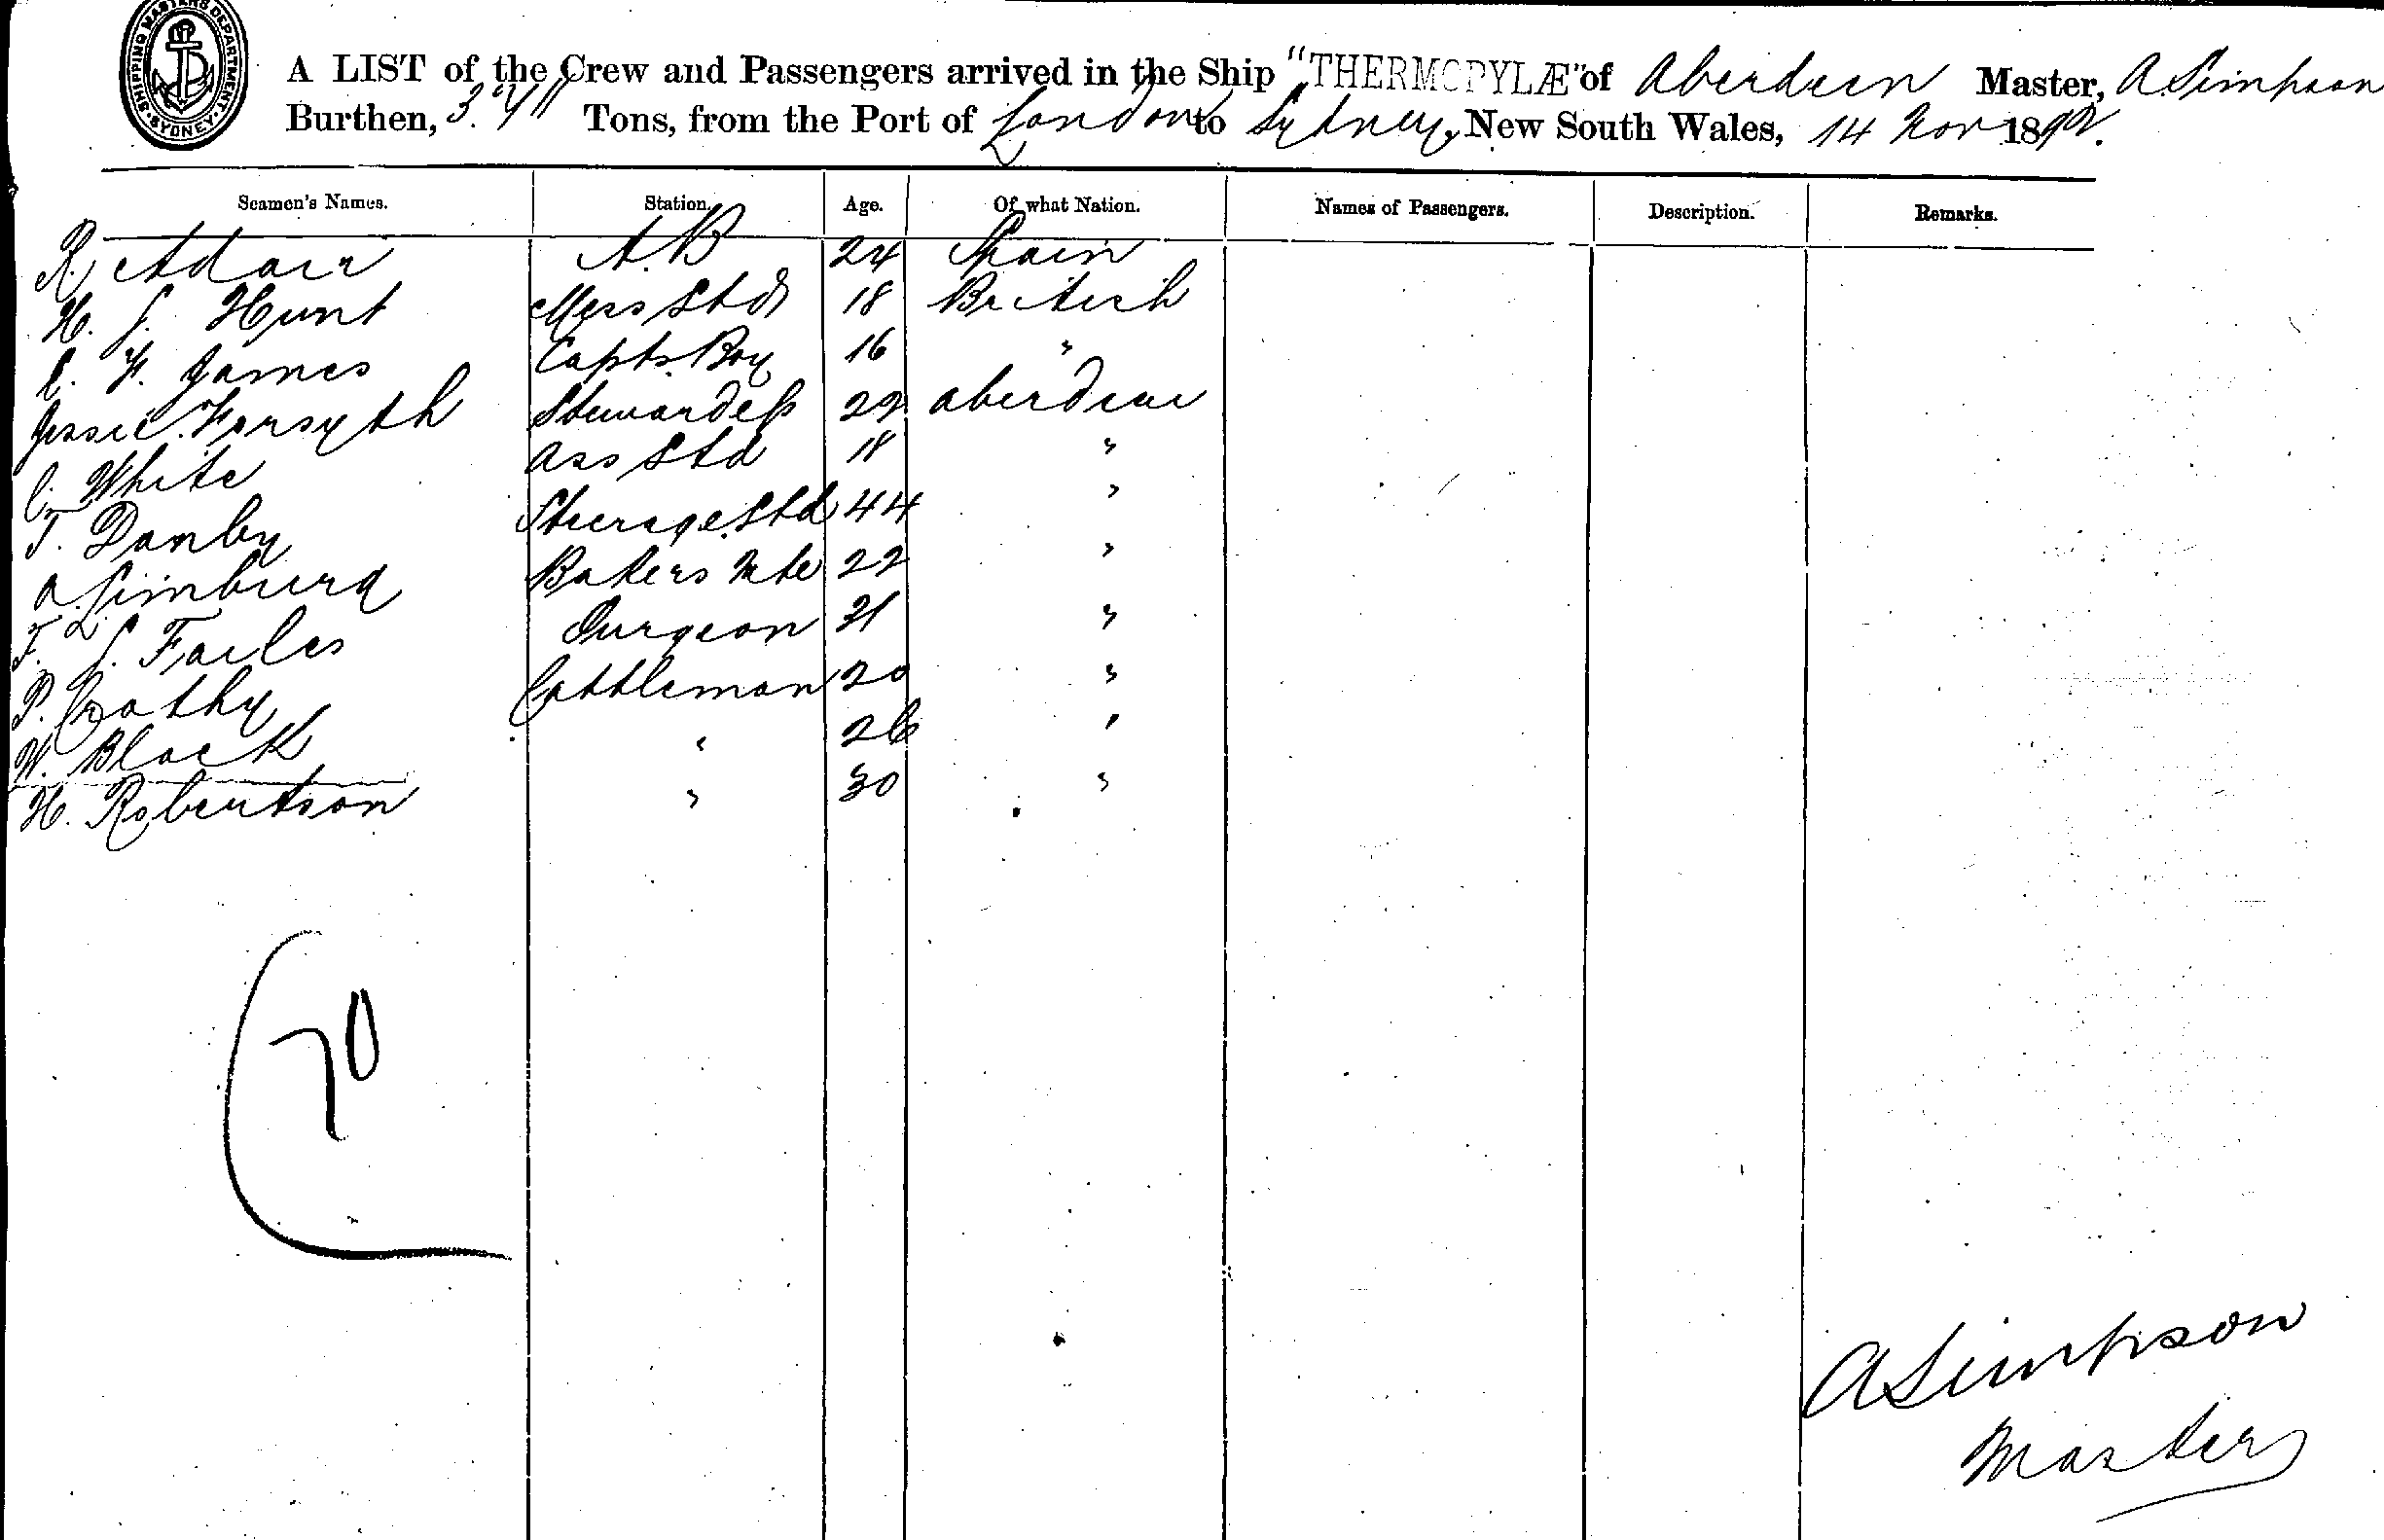 SHIPPING MASTERS DEPARTMENT · SYDNEY ·
A LIST of the Crew and Passengers arrived in the Ship "THERMOPYLÆ" of Aberdeen Master, A Simpson
Burthen, Tons, from the Port of London to Sydney, New South Wales, 14 Nov 1892.
Seamen's Names. Station. Age. Of what Nation. Names of Passengers. Description. Remarks.
R. Adair A.B 24 Spain
H. J. Hunt Mess Std 18 British
F. James Capts. Boy 16 "
Jessie Forsyth Stewardess 22 Aberdeen
C. White Ass Std 18 "
T. Danby Steerage Std 44 "
A. Limburg Bakers Mte 22 "
F. J. Failes Surgeon "
P. Cattleman 20 "
W. Black " 26 "
H. Robertson " 30 "
70
A Simpson
Master